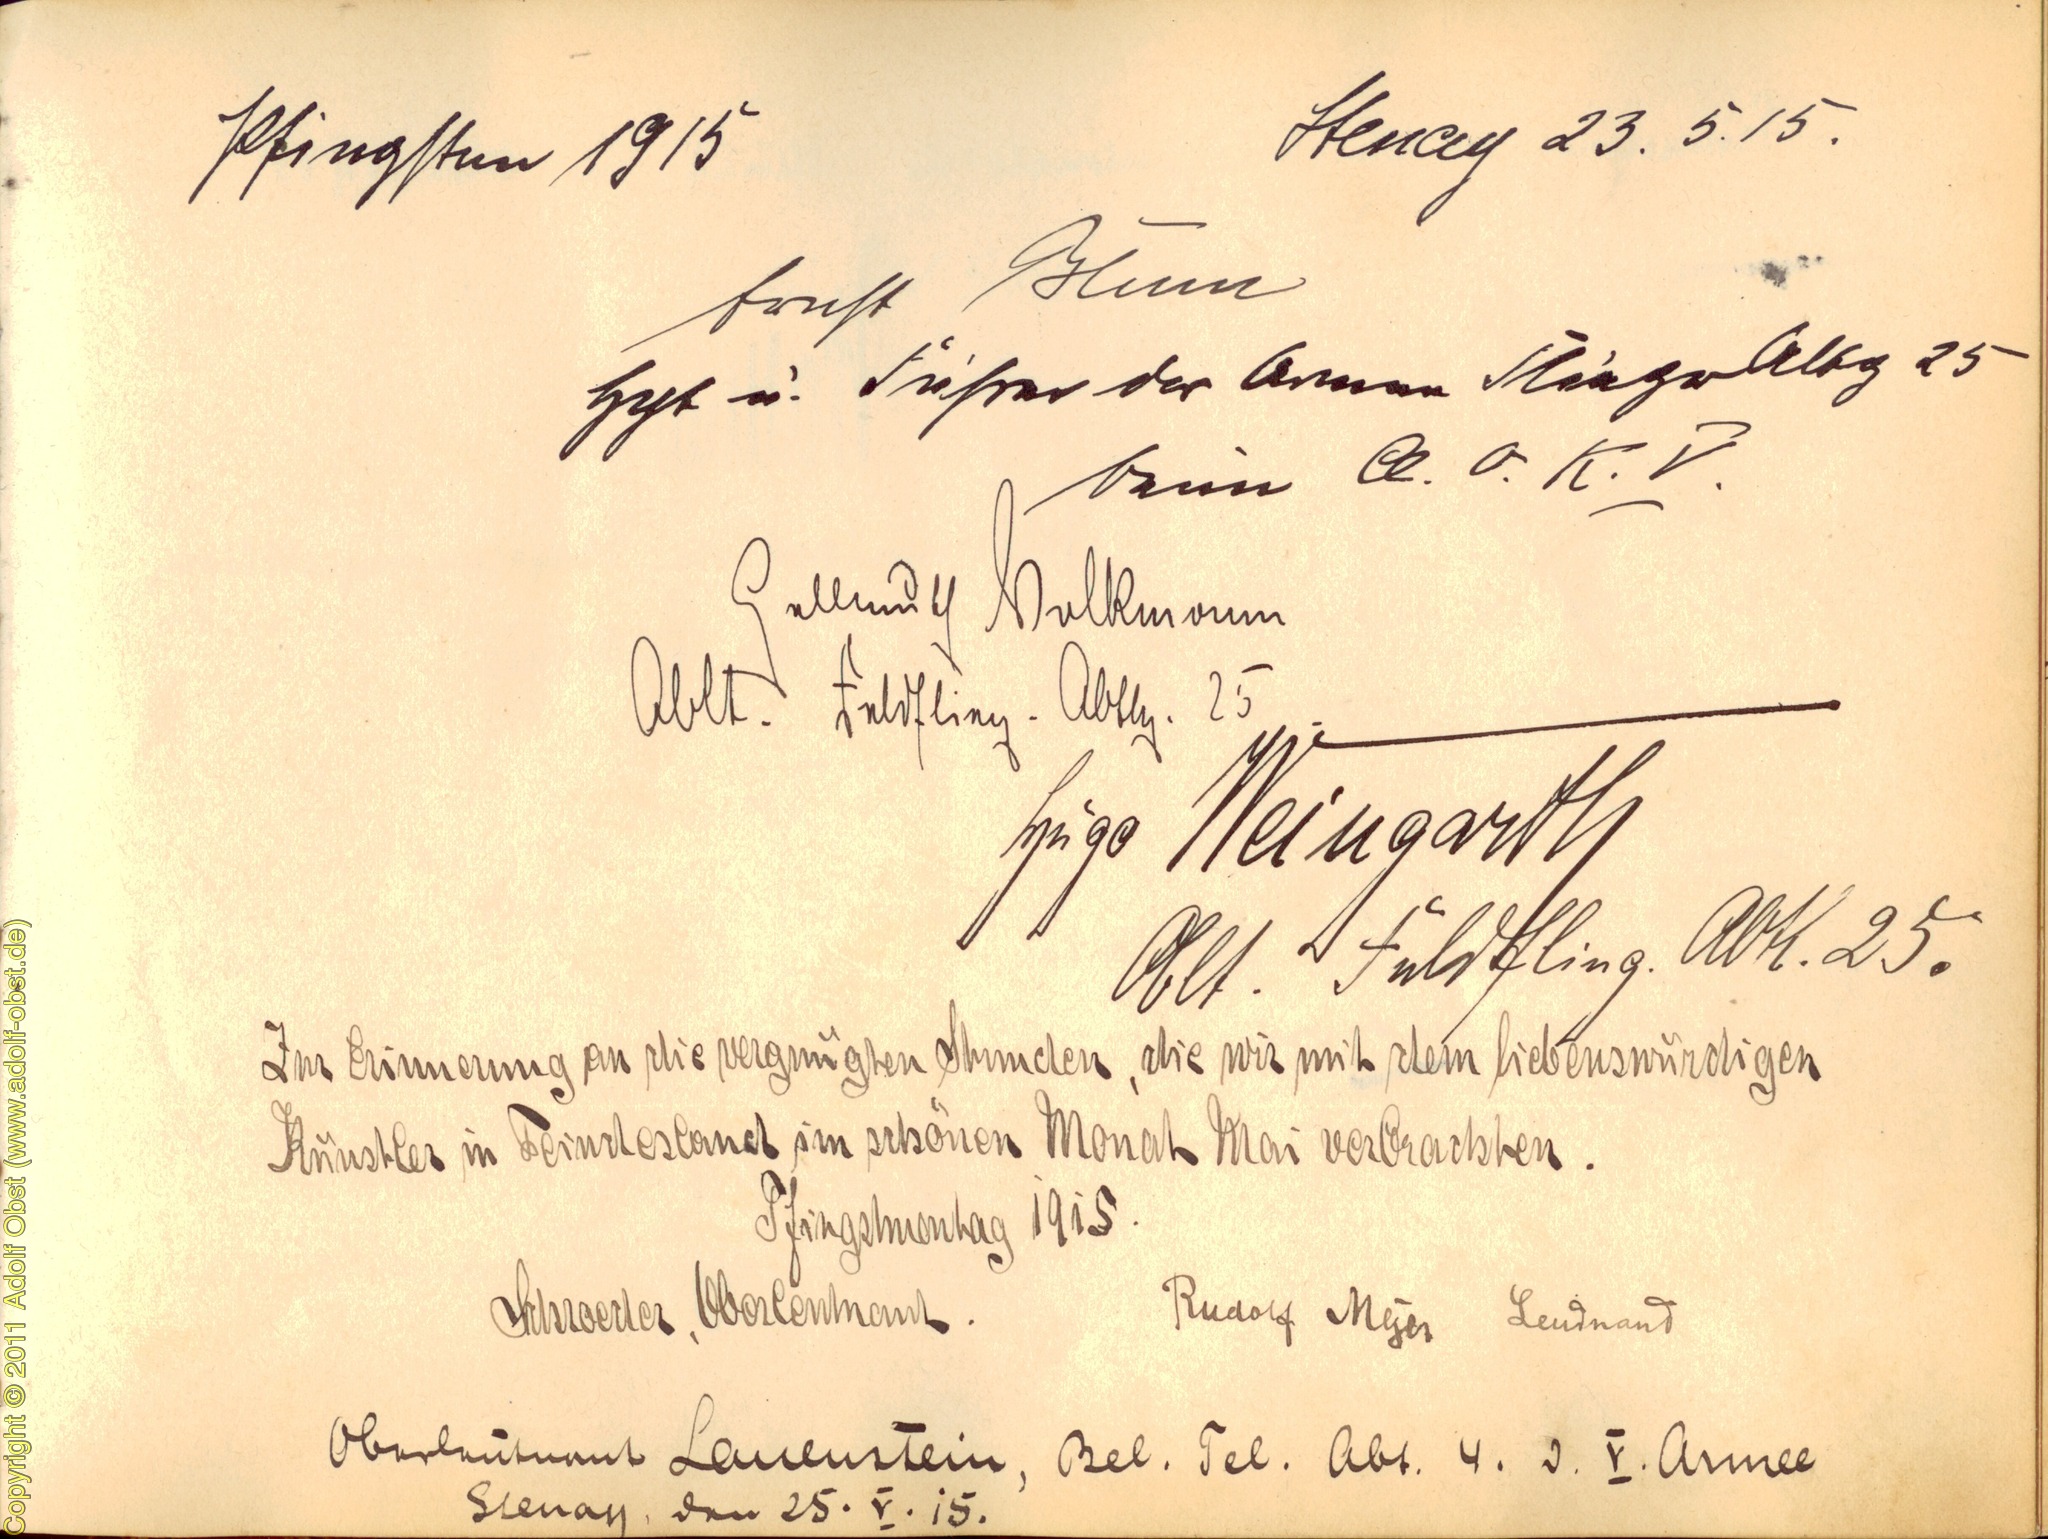 Pfingsten 1915
Stenay 23. 5. 15.
Ernst Blum
Hpt u. Führer der Armee Flieger Abtg 25
beim A. O. K. V.
Hellmuth Volkmann
Oblt. Feldflieg. Abtlg. 25
Hugo Weingarth
Oblt. Feldflieg. Abt. 25.
Zur Erinnerung an die vergnügten Stunden, die wir mit dem liebenswürdigen
Künstler in Feindesland im schönen Monat Mai verbrachten.
Pfingstmontag 1915.
Schroeder, Oberleutnant.
Rudolf Meyer Leudnand
Oberleutnant Lauenstein, Bel. Tel. Abt. 4. d. V. Armee
Stenay, den 25. V. 15.
Copyright © 2011 Adolf Obst (www.adolf-obst.de)